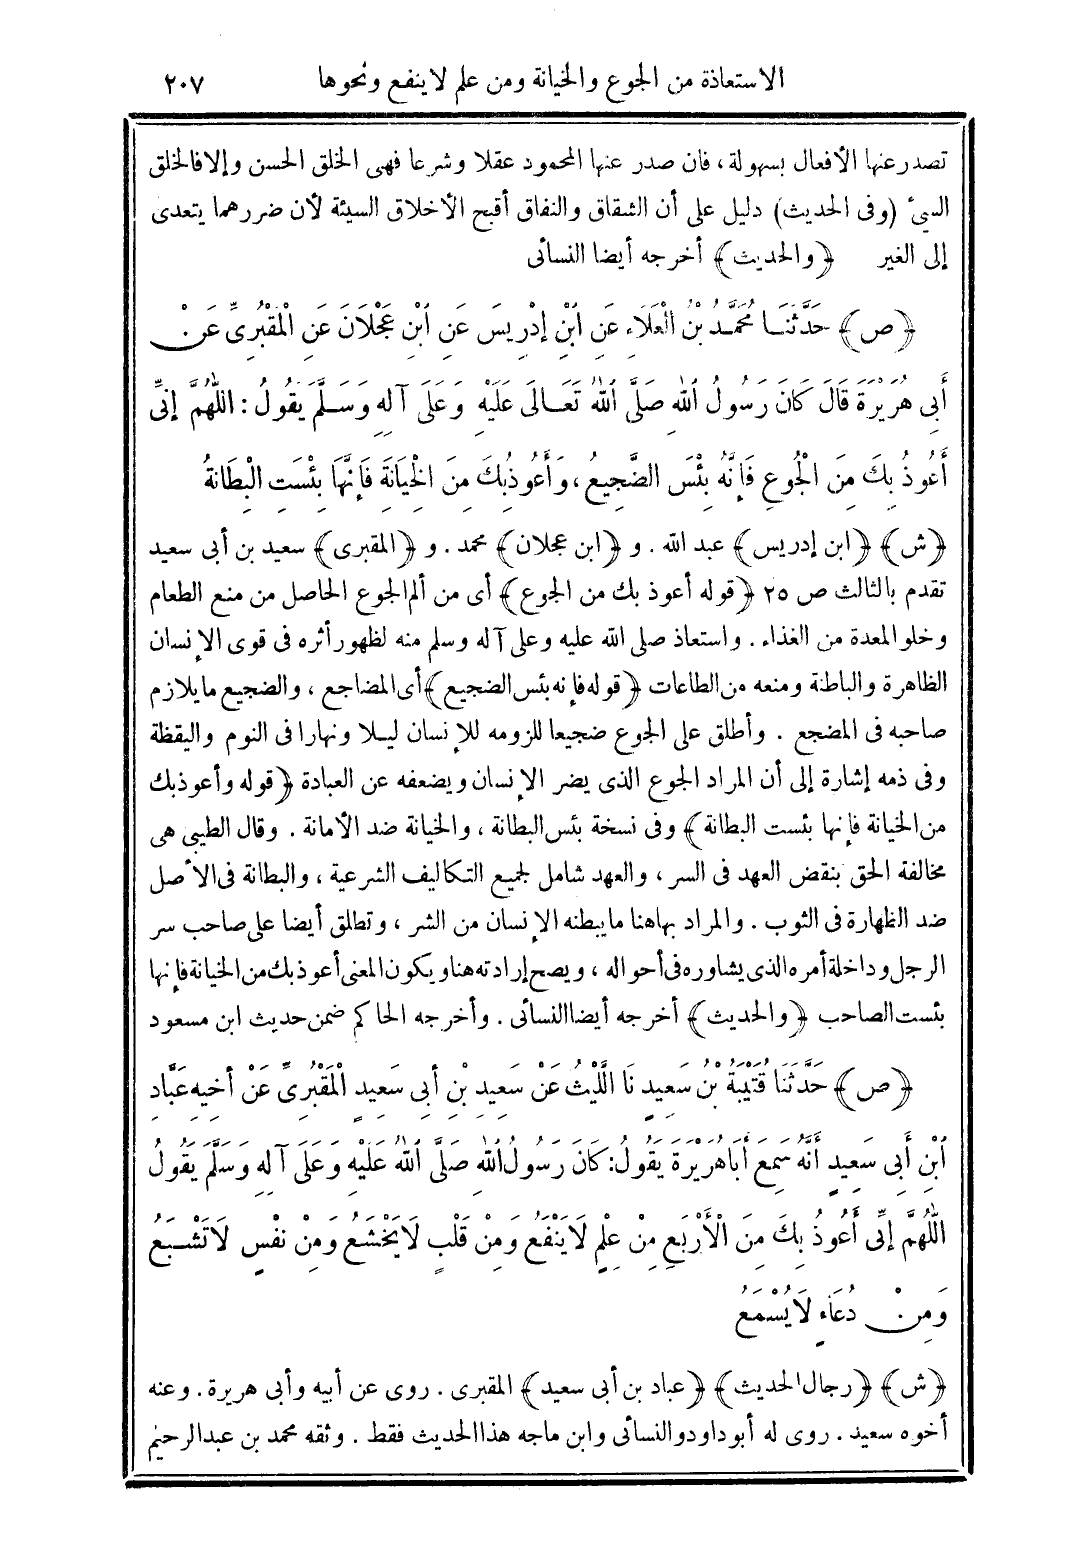 الاستعاذة من الجوع والخيانة ومن علم لاينفع ونحوها ٢٠٧
تصدر عنها الأفعال بسهولة ، فان صدر عنها المحمود عقلا وشرعا فهى الخلق الحسن وإلافالخلق
السيئ (وفى الحديث) دليل على أن الشقاق والنفاق أقبح الأخلاق السيئة لأن ضررهما يتعدى
إلى الغير ﴿والحديث﴾ أخرجه أيضا النسائى
﴿ص﴾ حَدَّثَنَا مُحَمَّدُ بْنُ الْعَلَاءِ عَنِ ابْنِ إِدْرِيسَ عَنِ ابْنِ عَجْلَانَ عَنِ الْمَقْبُرِىِّ عَنْ
أَبِى هُرَيْرَةَ قَالَ كَانَ رَسُولُ اللهِ صَلَّى اللهُ تَعَالَى عَلَيْهِ وَعَلَى آلِهِ وَسَلَّمَ يَقُولُ : اللَّهُمَّ إِنِّى
أَعُوذُ بِكَ مِنَ الْجُوعِ فَإِنَّهُ بِئْسَ الضَّجِيعُ ، وَأَعُوذُ بِكَ مِنَ الْخِيَانَةِ فَإِنَّهَا بِئْسَتِ الْبِطَانَةُ
﴿ش﴾ ﴿ابن إدريس﴾ عبد الله . و ﴿ابن عجلان﴾ محمد . و ﴿المقبرى﴾ سعيد بن أبى سعيد
تقدم بالثالث ص ٢٥ ﴿قوله أعوذ بك من الجوع﴾ أى من ألم الجوع الحاصل من منع الطعام
وخلو المعدة من الغذاء . واستعاذ صلى الله عليه وعلى آله وسلم منه لظهور أثره فى قوى الإنسان
الظاهرة والباطنة ومنعه من الطاعات ﴿قوله فإنه بئس الضجيع﴾ أى المضاجع ، والضجيع مايلازم
صاحبه فى المضجع . وأطلق على الجوع ضجيعا للزومه للإنسان ليلا ونهارا فى النوم واليقظة
وفى ذمه إشارة إلى أن المراد الجوع الذى يضر الإنسان ويضعفه عن العبادة ﴿قوله وأعوذ بك
من الخيانة فإنها بئست البطانة﴾ وفى نسخة بئس البطانة ، والخيانة ضد الأمانة . وقال الطيبى هى
مخالفة الحق بنقض العهد فى السر ، والعهد شامل لجميع التكاليف الشرعية ، والبطانة فى الأصل
ضد الظهارة فى الثوب . والمراد بها هنا مايبطنه الإنسان من الشر ، وتطلق أيضا على صاحب سر
الرجل وداخلة أمره الذى يشاوره فى أحواله ، ويصح إرادته هنا ويكون المعنى أعوذ بك من الخيانة فإنها
بئست الصاحب ﴿والحديث﴾ أخرجه أيضا النسائى . وأخرجه الحاكم ضمن حديث ابن مسعود
﴿ص﴾ حَدَّثَنَا قُتَيْبَةُ بْنُ سَعِيدٍ نَا اللَّيْثُ عَنْ سَعِيدِ بْنِ أَبِى سَعِيدٍ الْمَقْبُرِىِّ عَنْ أَخِيهِ عَبَّادِ
ابْنِ أَبِى سَعِيدٍ أَنَّهُ سَمِعَ أَبَا هُرَيْرَةَ يَقُولُ : كَانَ رَسُولُ اللهِ صَلَّى اللهُ عَلَيْهِ وَعَلَى آلِهِ وَسَلَّمَ يَقُولُ
اللَّهُمَّ إِنِّى أَعُوذُ بِكَ مِنَ الْأَرْبَعِ مِنْ عِلْمٍ لَا يَنْفَعُ وَمِنْ قَلْبٍ لَا يَخْشَعُ وَمِنْ نَفْسٍ لَا تَشْبَعُ
وَمِنْ دُعَاءٍ لَا يُسْمَعُ
﴿ش﴾ ﴿رجال الحديث﴾ ﴿عباد بن أبى سعيد﴾ المقبرى . روى عن أبيه وأبى هريرة . وعنه
أخوه سعيد . روى له أبوداود والنسائى وابن ماجه هذا الحديث فقط . وثقه محمد بن عبدالرحيم